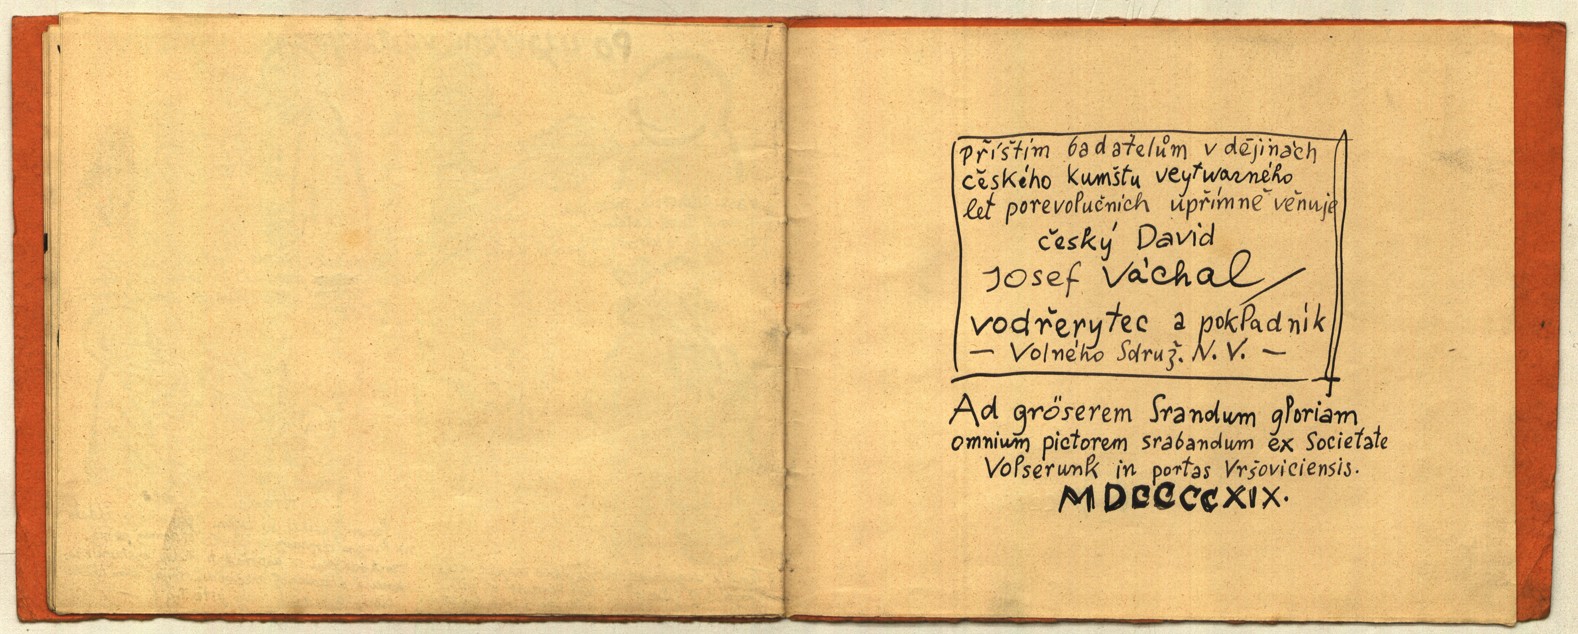 příštím badatelům v dějinách
českého kumštu veytwarného
let porevolučních upřímně věnuje
český David
Josef Váchal
vodřerytec a pokladník
— Volného Sdruž. N. V. —
Ad gröserem Srandum gloriam
omnium pictorem srabandum ex Societate
Volserunk in portas Vršoviciensis.
MDCCCCXIX.